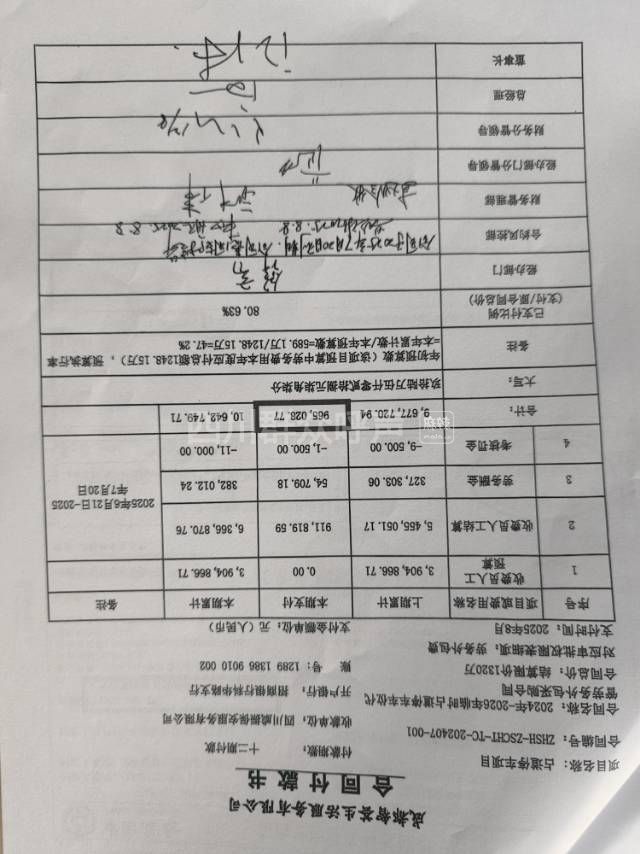 成都智荟生活服务有限公司
合同付款书
项目名称：占道停车项目 付款期数：十二期付款
合同编号：ZHSH-ZSCHT-TC-202407-001 收款单位：四川威顺保安服务有限公司
合同名称：2024年-2026年临时占道停车车位代
管劳务外包采购合同 开户银行：招商银行华科路支行
合同总价：结算限价1320万 账 号：1289 1386 9010 002
对应审批权限表细项：劳务外包费
支付时间：2025年8月 支付金额单位：元（人民币）
序号 项目或费用名称 上期累计 本期支付 本期累计 备注
1 收费员人工预算 3,904,866.71 0.00 3,904,866.71
2 收费员人工结算 5,455,051.17 911,819.59 6,366,870.76 2025年6月21日-2025年7月20日
3 劳务酬金 327,303.06 54,709.18 382,012.24
4 考核罚金 -9,500.00 -1,500.00 -11,000.00
合计： 9,677,720.94 965,028.77 10,642,749.71
大写： 玖拾陆万伍仟零贰拾捌元柒角柒分
备注 年初预算数（该项目预算中劳务费用本年度应付总额1248.15万），预算执行率
=本年累计数/本年预算数=589.1万/1248.15万=47.2%
已支付比例
(支付/合同总价) 80.63%
经办部门
合约风控部
财务管理部
经办部门分管领导
财务分管领导
总经理
董事长
四川群众呼声